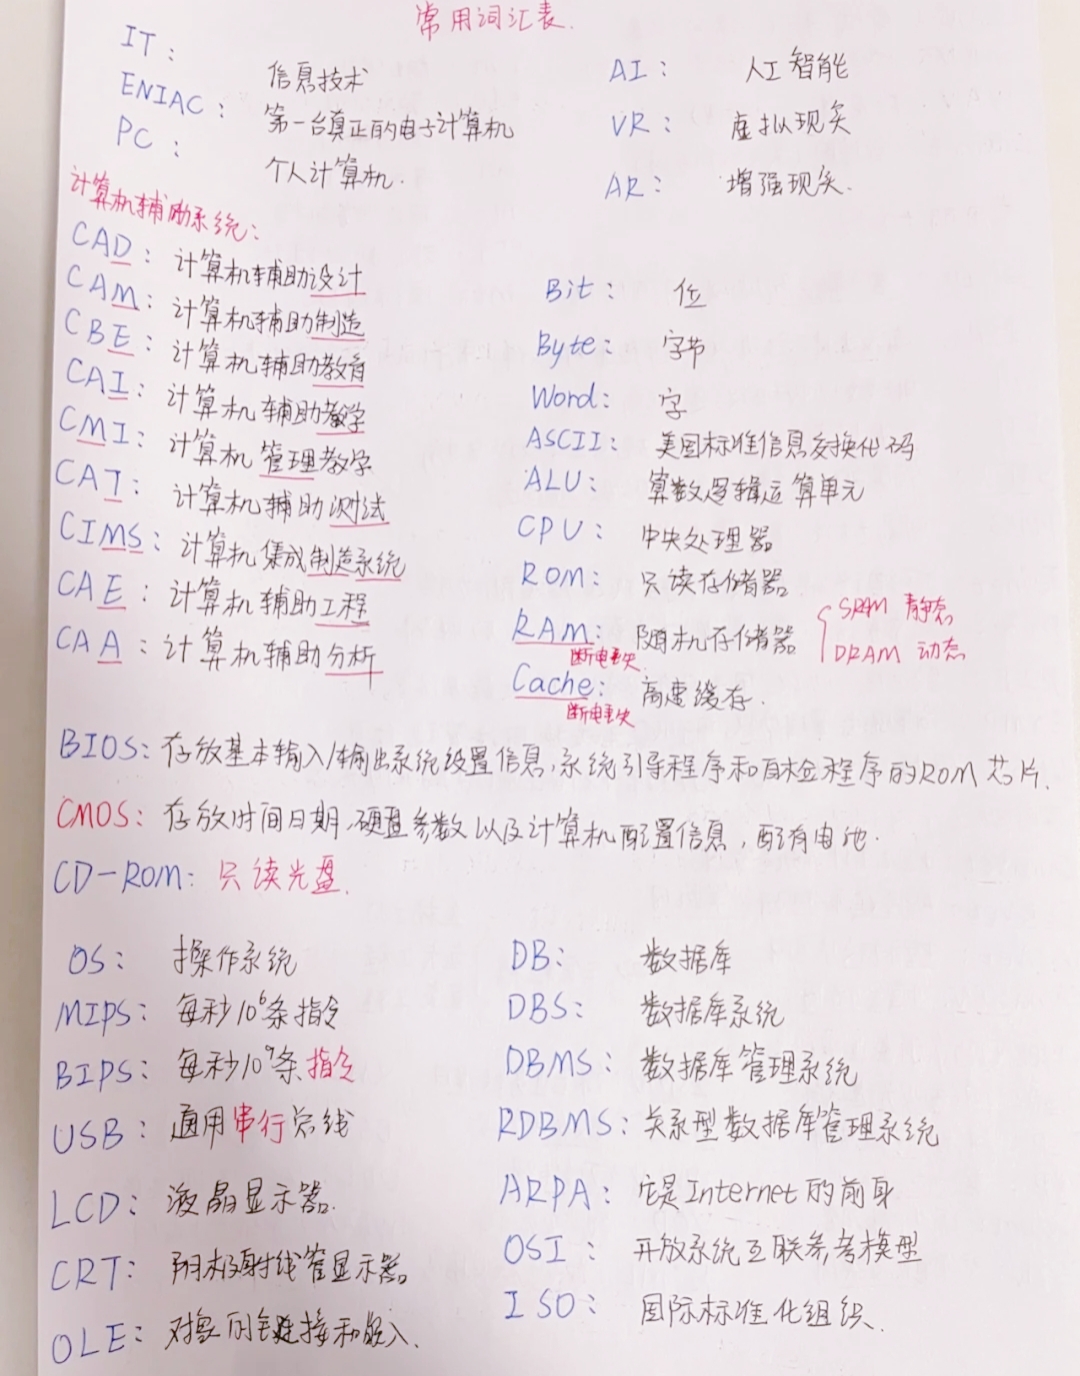 常用词汇表.
IT: 信息技术
ENIAC: 第一台真正的电子计算机
PC: 个人计算机.
AI: 人工智能
VR: 虚拟现实
AR: 增强现实.
计算机辅助系统:
CAD: 计算机辅助设计
CAM: 计算机辅助制造
CBE: 计算机辅助教育
CAI: 计算机辅助教学
CMI: 计算机管理教学
CAT: 计算机辅助测试
CIMS: 计算机集成制造系统
CAE: 计算机辅助工程
CAA: 计算机辅助分析
Bit: 位
Byte: 字节
Word: 字
ASCII: 美国标准信息交换代码
ALU: 算数逻辑运算单元
CPU: 中央处理器
ROM: 只读存储器
RAM: 随机存储器
断电丢失.
SRAM 静态
DRAM 动态
Cache: 高速缓存.
断电丢失
BIOS: 存放基本输入/输出系统设置信息,系统引导程序和自检程序的ROM芯片.
CMOS: 存放时间日期、硬盘参数以及计算机配置信息,配有电池.
CD-ROM: 只读光盘.
OS: 操作系统
MIPS: 每秒10⁶条指令
BIPS: 每秒10⁹条指令
USB: 通用串行总线
LCD: 液晶显示器.
CRT: 阴极射线管显示器。
OLE: 对象的链接和嵌入.
DB: 数据库
DBS: 数据库系统
DBMS: 数据库管理系统
RDBMS: 关系型数据库管理系统
ARPA: 它是Internet的前身
OSI: 开放系统互联参考模型
ISO: 国际标准化组织.